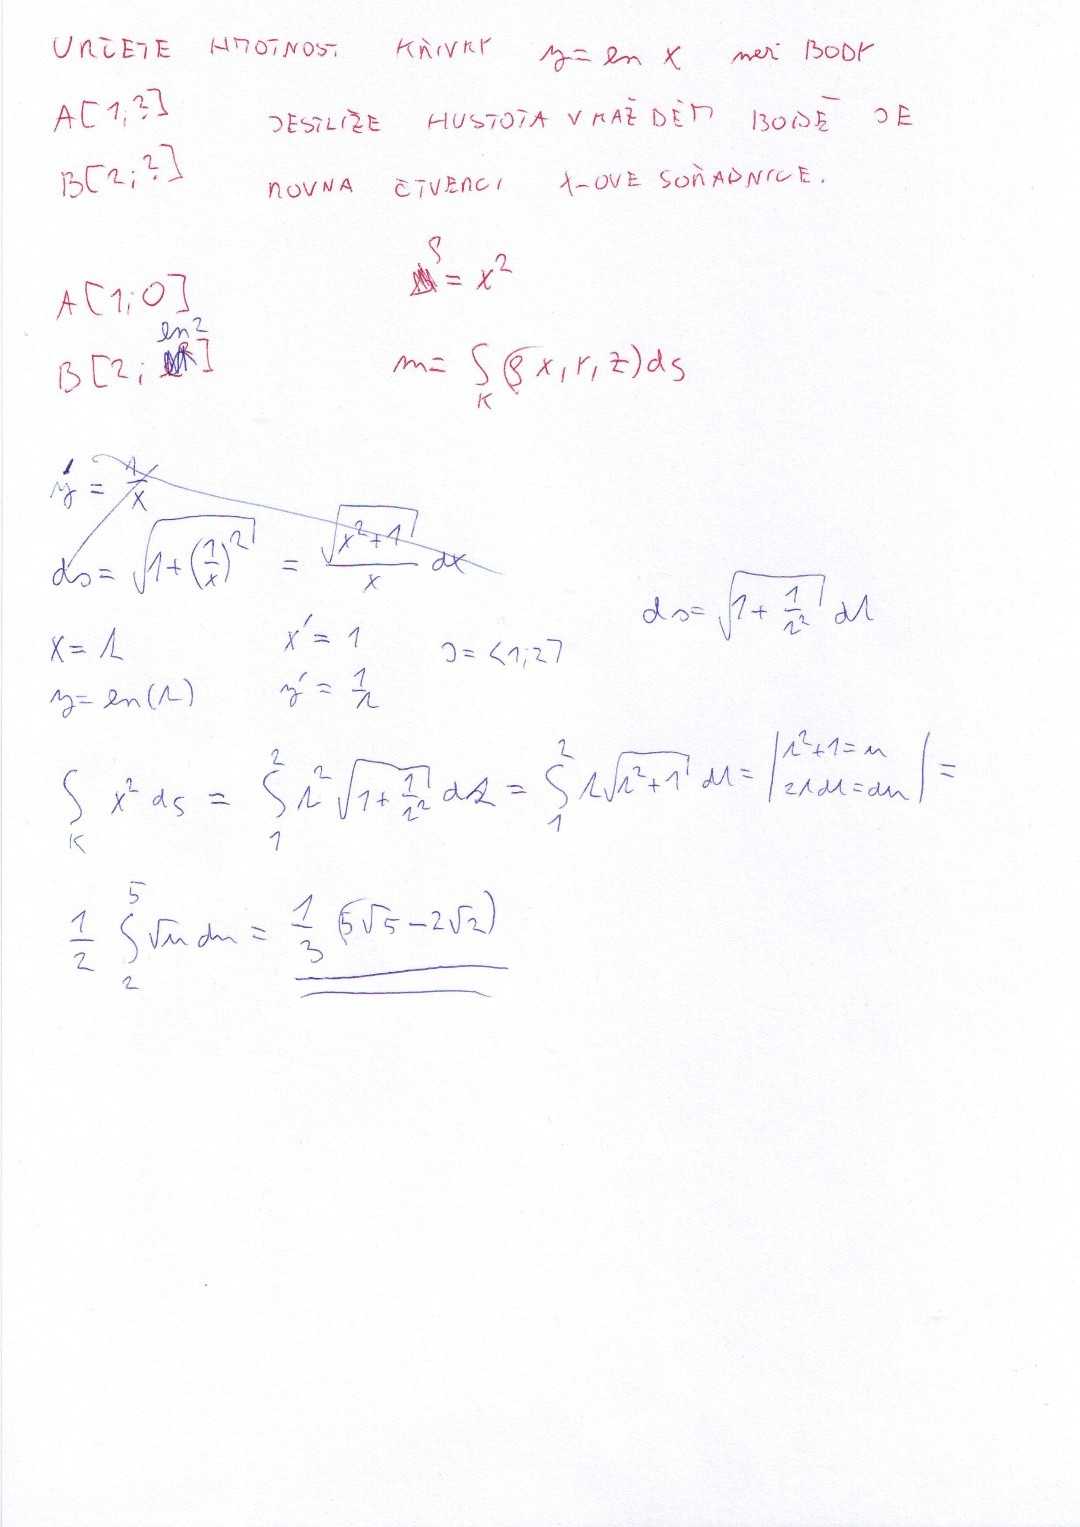 URČETE HMOTNOST KŘIVKY y = ln x mezi BODY
A[1;?] JESTLIŽE HUSTOTA V KAŽDÉM BODĚ JE
B[2;?] ROVNA ČTVERCI X-OVÉ SOUŘADNICE.
A[1;0] ρ = x²
B[2; ln 2] m = ∫_K ρ(x, y, z) ds
y' = 1/x
ds = √(1+(1/x)²) = √(x²+1)/x dx
ds = √(1 + 1/t²) dt
x = t x' = 1 J = <1;2>
y = ln(t) y' = 1/t
∫_K x² ds = ∫_1^2 t² √(1 + 1/t²) dt = ∫_1^2 t√(t²+1) dt = | t²+1 = u 2t dt = du | =
1/2 ∫_2^5 √u du = 1/3 (5√5 - 2√2)